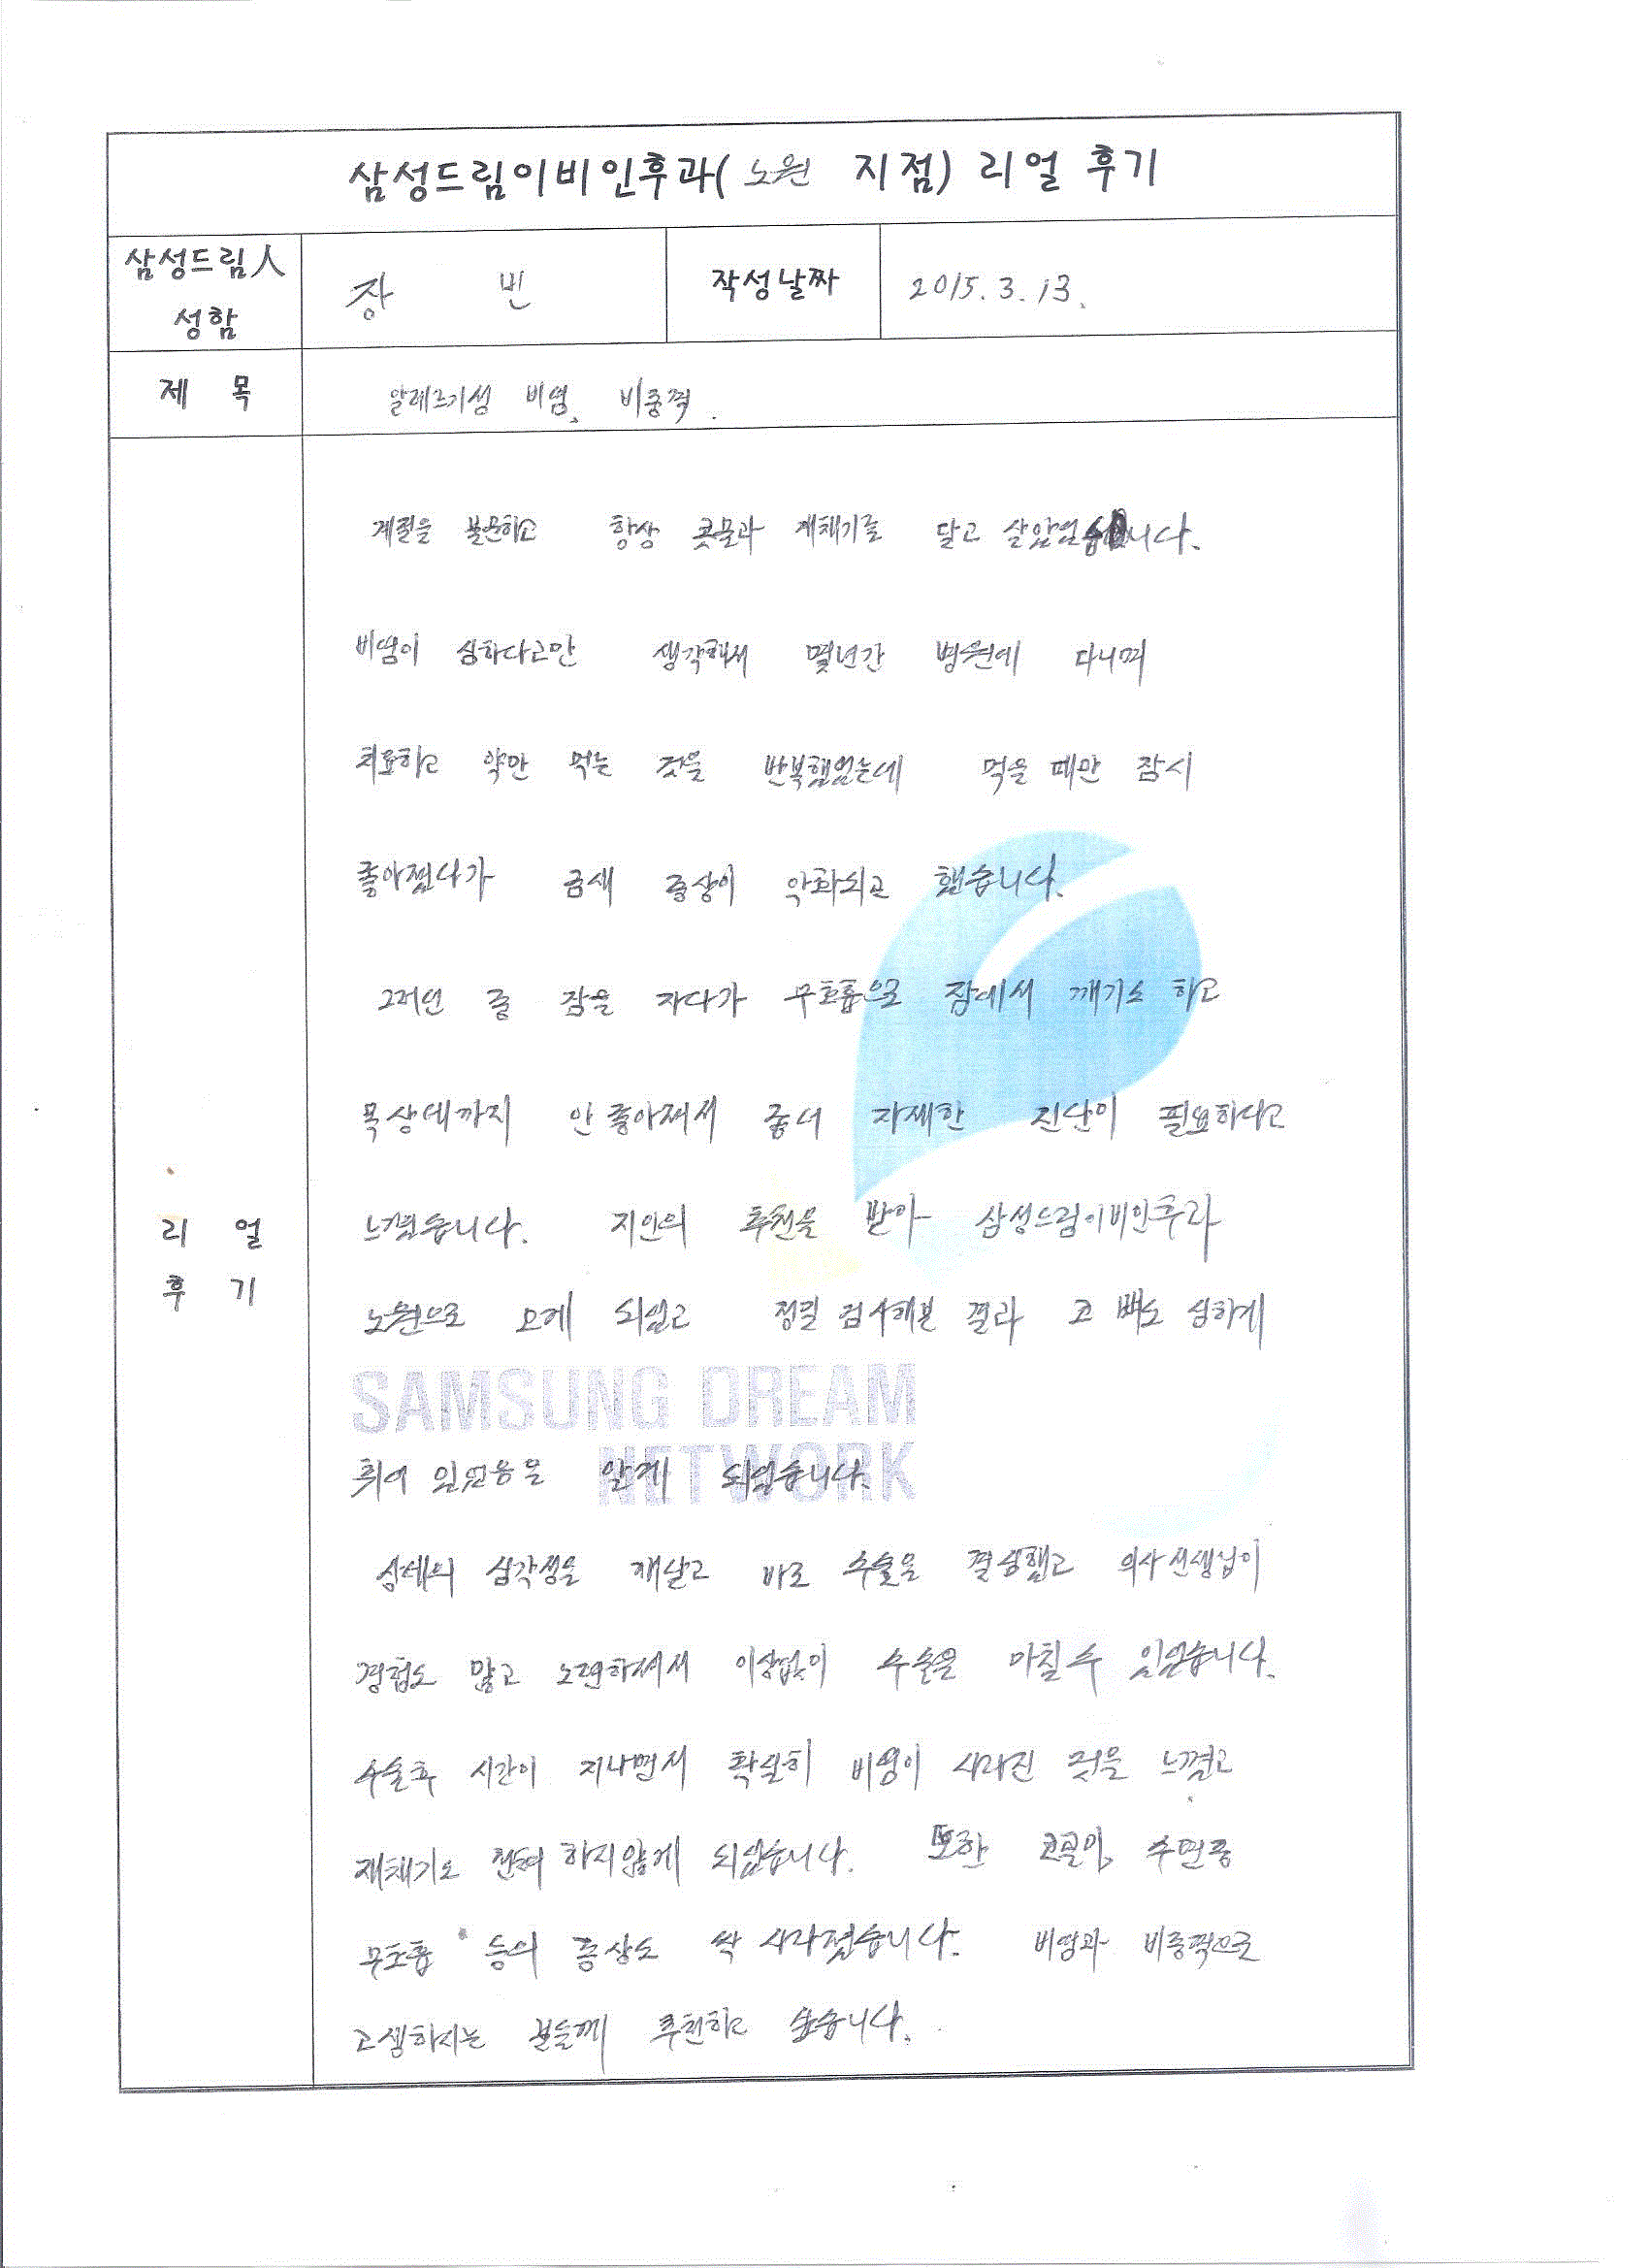 삼성드림이비인후과( 노원 지점) 리얼 후기
삼성드림人 성함
장 빈
작성날짜
2015. 3. 13.
제 목
알레르기성 비염, 비중격.
리 얼 후 기
계절을 불문하고 항상 콧물과 재채기를 달고 살았었습니다.
비염이 심하다고만 생각해서 몇년간 병원에 다니며
치료하고 약만 먹는 것을 반복했었는데 먹을 때만 잠시
좋아졌다가 금새 증상이 악화되곤 했습니다.
그러던 중 잠을 자다가 무호흡으로 잠에서 깨기도 하고
목상태까지 안 좋아져서 좀더 자세한 진단이 필요하다고
느꼈습니다. 지인의 추천을 받아 삼성드림이비인후과
노원으로 오게 되었고 정밀 검사해본 결과 코 뼈도 심하게
SAMSUNG DREAM
NETWORK
휘어 있었음을 알게 되었습니다.
상태의 심각성을 깨닫고 바로 수술을 결심했고 의사선생님이
경험도 많고 노련하셔서 이상없이 수술을 마칠 수 있었습니다.
수술후 시간이 지나면서 확실히 비염이 사라진 것을 느꼈고
재채기도 전혀 하지않게 되었습니다. 또한 코골이, 수면중
무호흡 등의 증상도 싹 사라졌습니다. 비염과 비중격으로
고생하시는 분들께 추천하고 싶습니다.